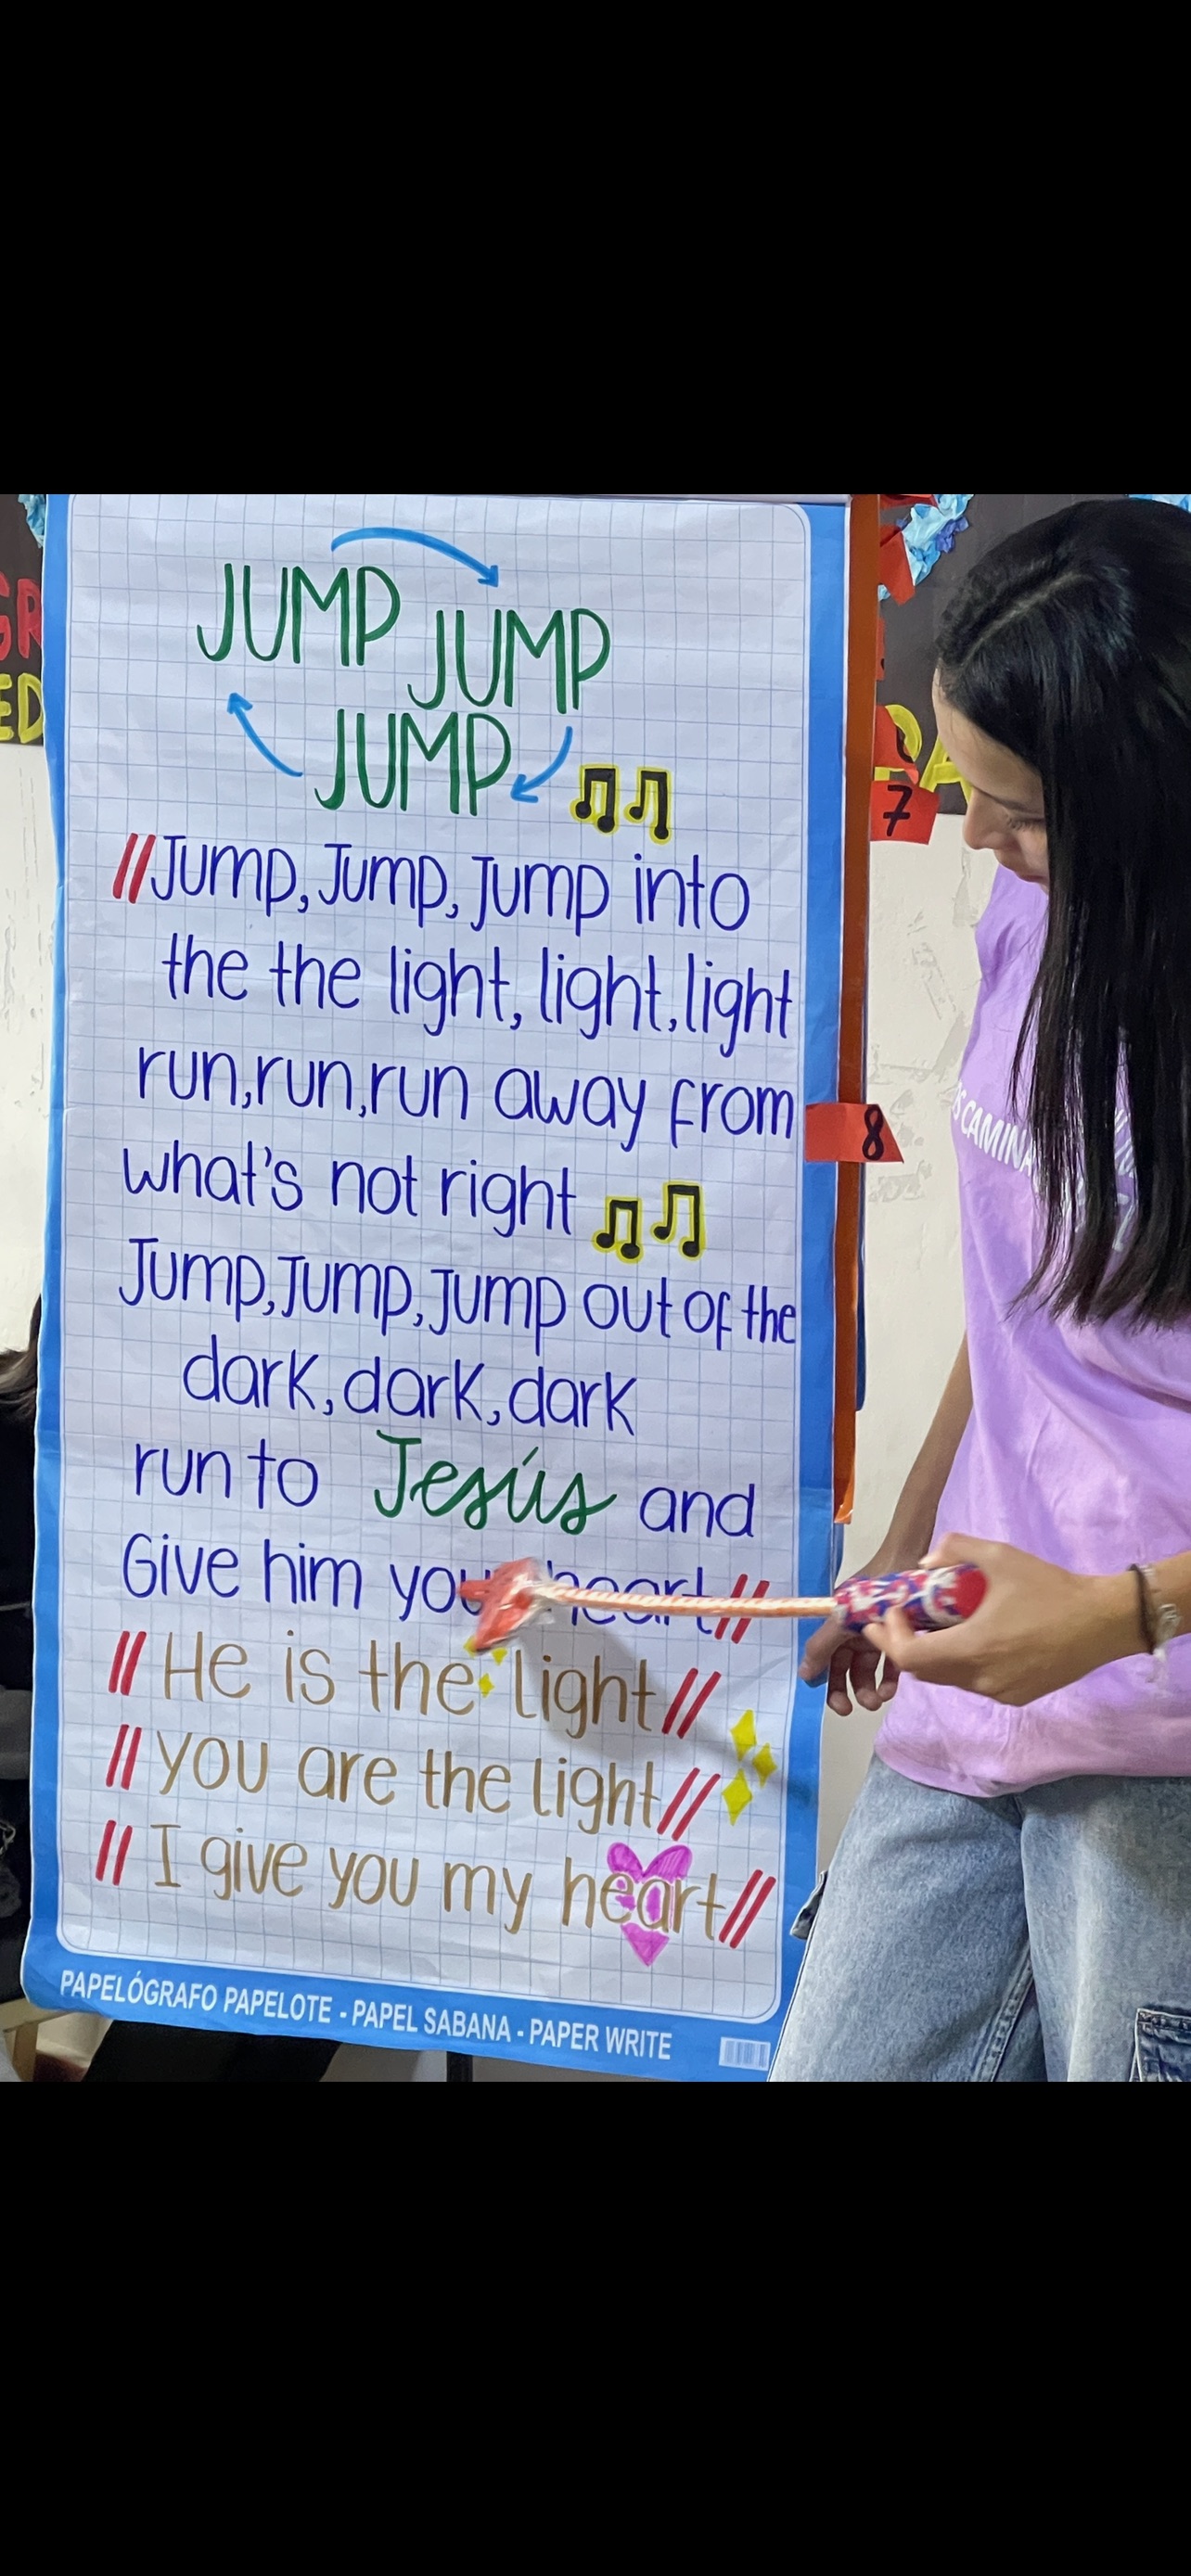 JUMP JUMP
JUMP
//Jump, Jump, Jump into
the the light, light, light
run, run, run away from
what's not right
Jump, Jump, Jump out of the
dark, dark, dark
run to Jesús and
Give him your heart//
// He is the light//
// you are the light//
// I give you my heart//
PAPELÓGRAFO PAPELOTE - PAPEL SABANA - PAPER WRITE
GR
ED
7
8